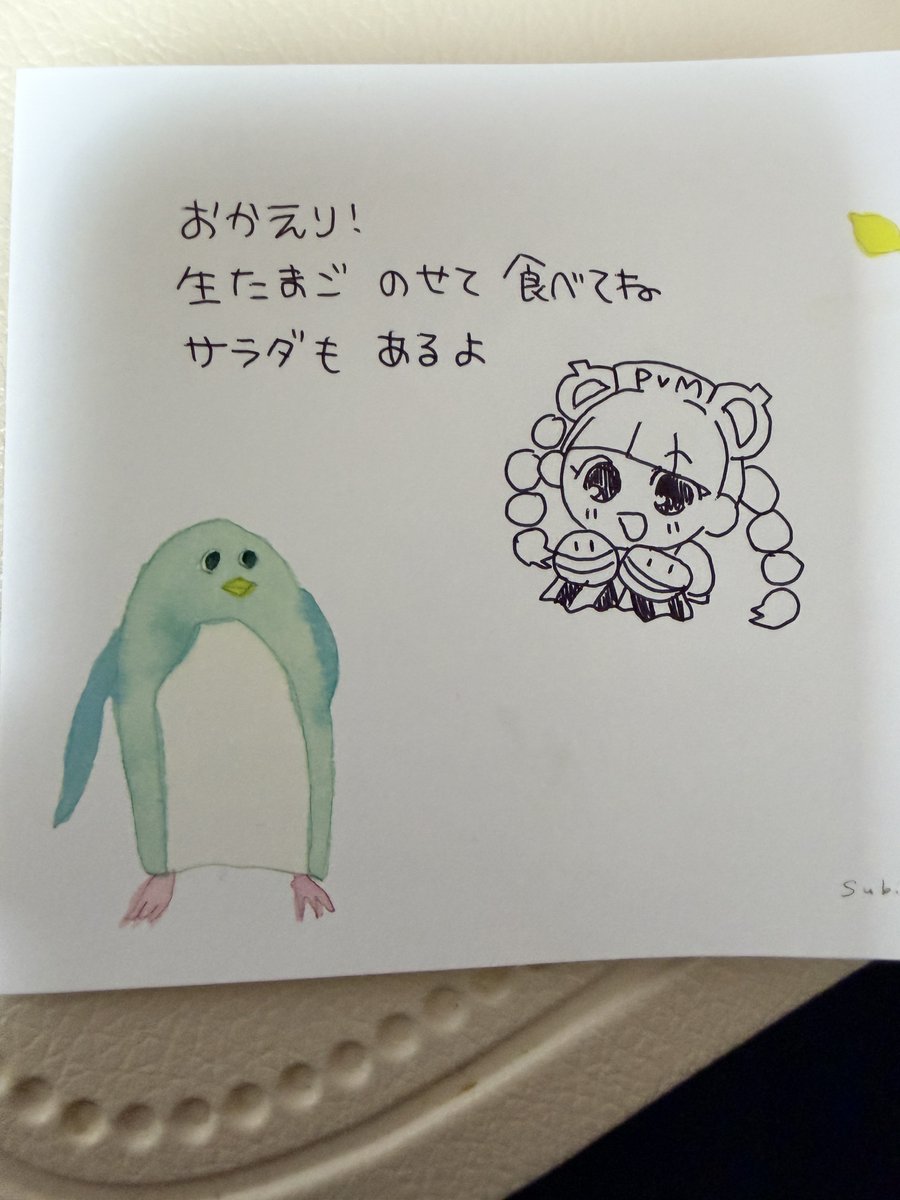 おかえり!
生たまご のせて 食べてね
サラダも あるよ
PvM
Sub.